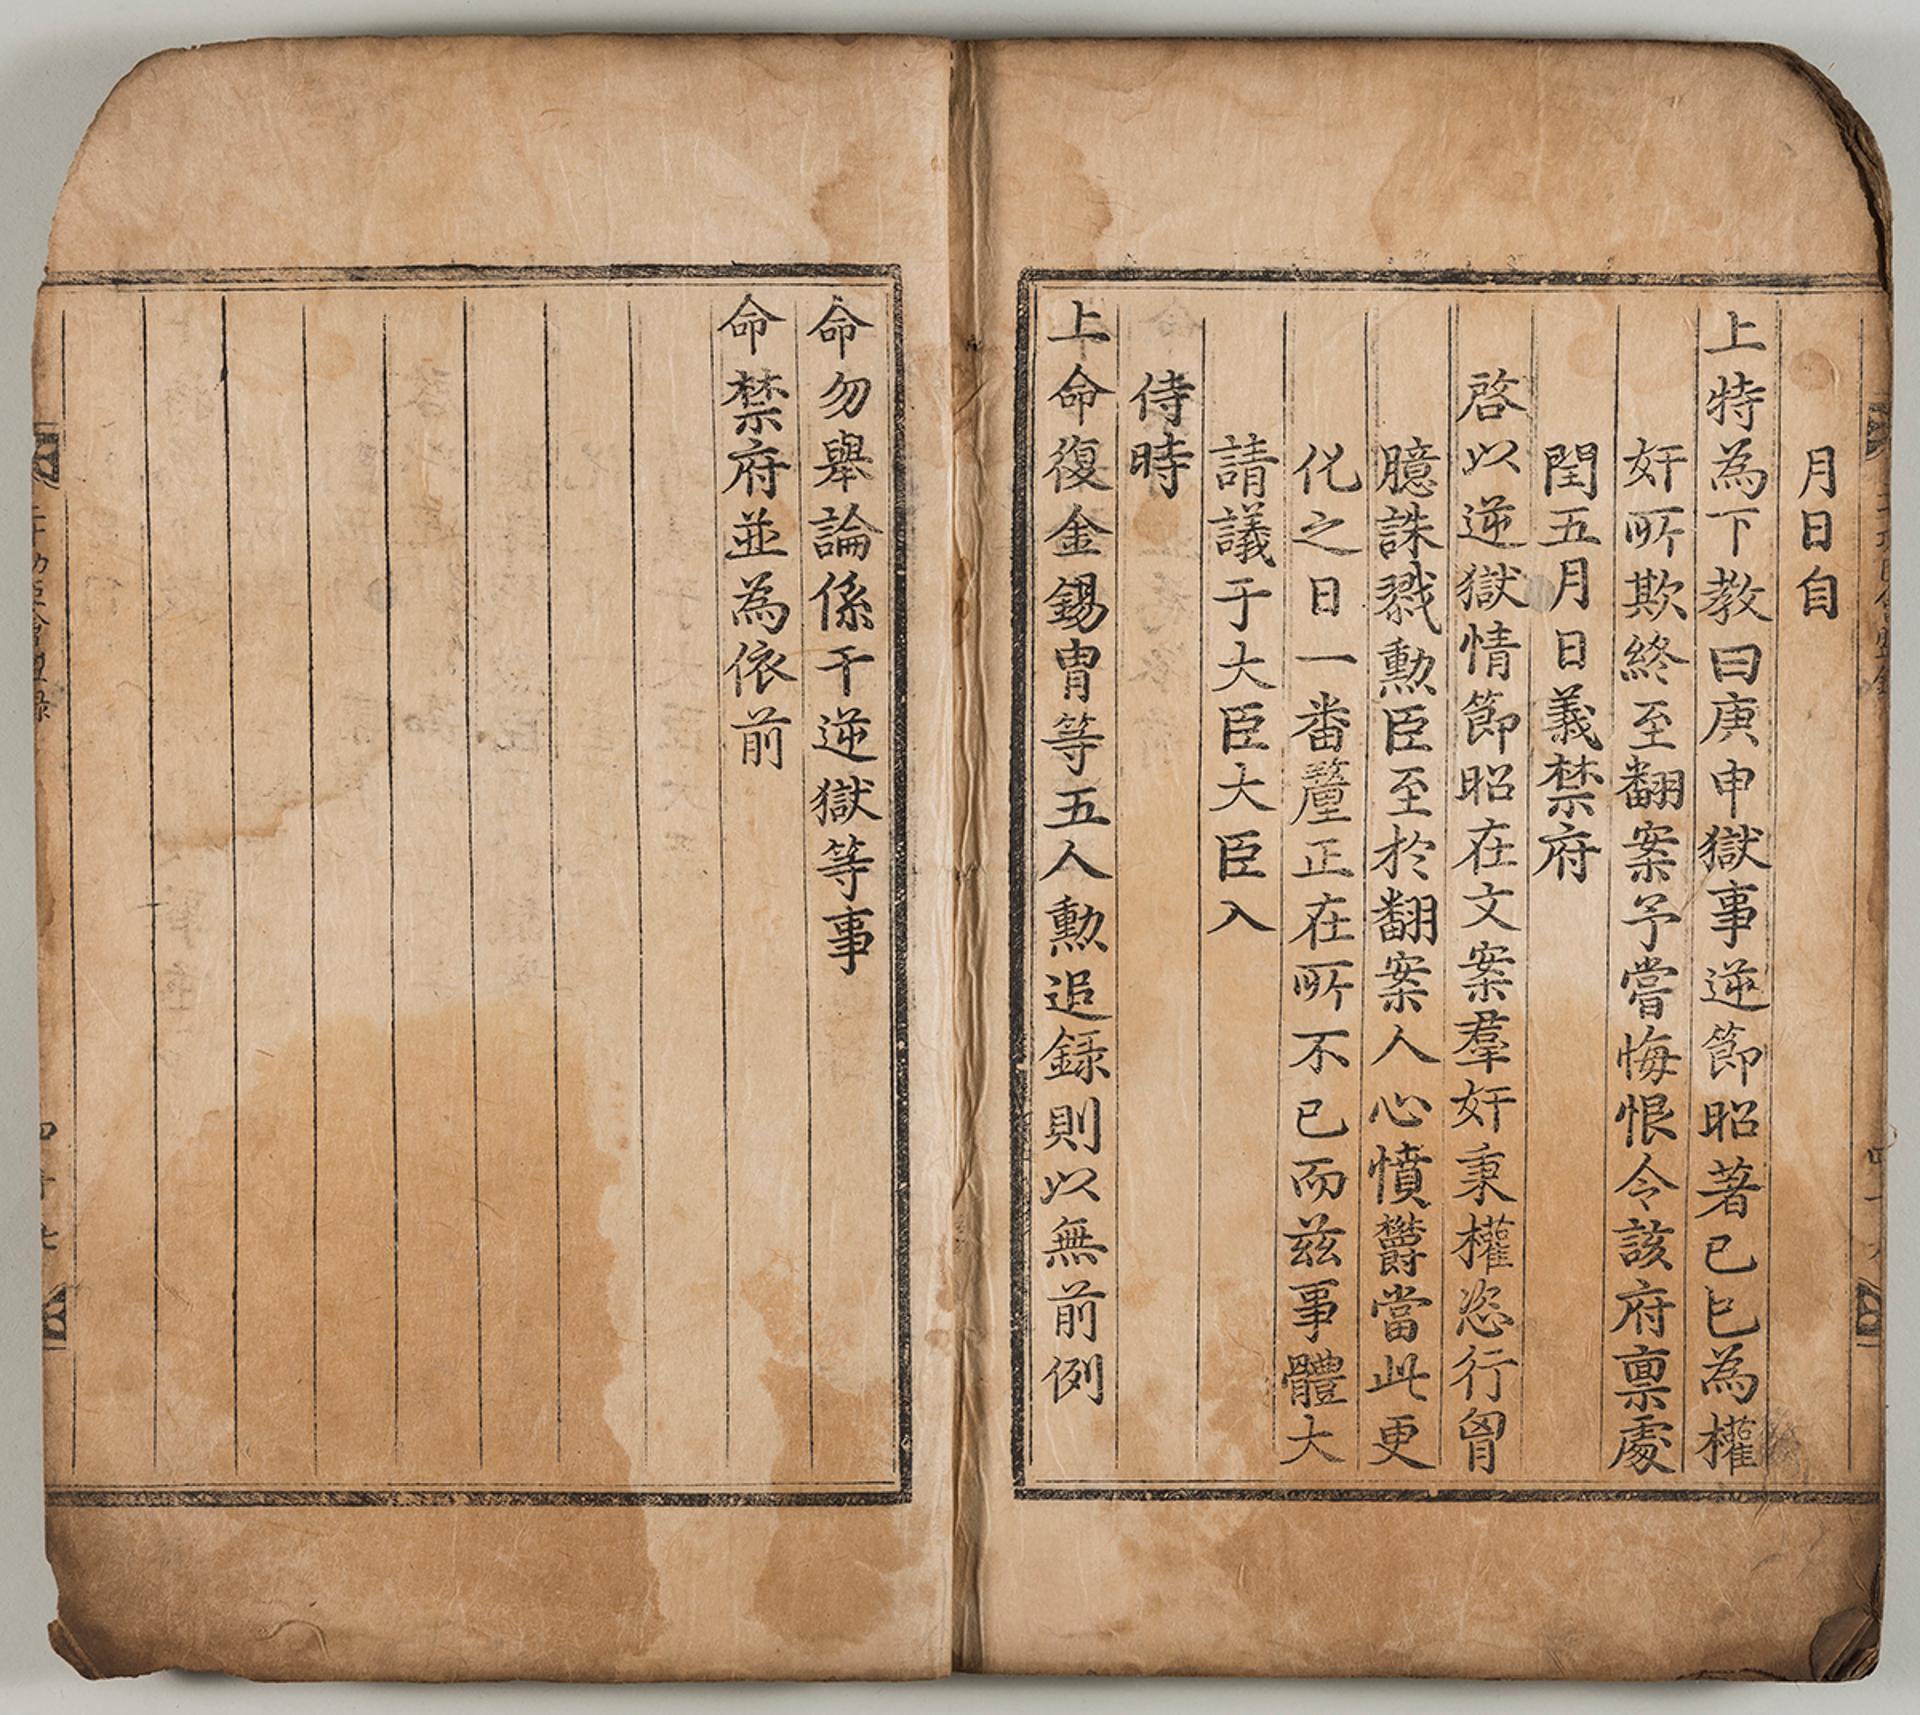 月日自
上特為下教曰庚申獄事逆節昭著己巳為權
奸所欺終至翻案予嘗悔恨令該府禀處
閏五月日義禁府
啓以逆獄情節昭在文案羣奸秉權恣行胷
臆誅戮勳臣至於翻案人心憤欝當此更
化之日一番釐正在所不已而茲事體大
請議于大臣大臣入
侍時
上命復金錫胄等五人勳追録則以無前例
命勿舉論係干逆獄等事
命禁府並為依前